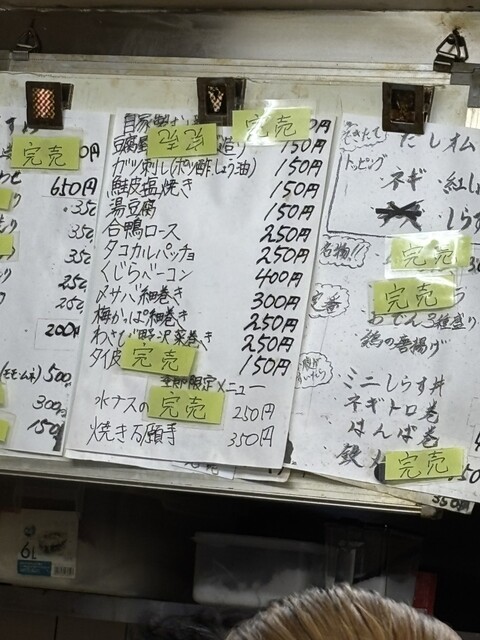 完売
650円
35
35
35
25
25
200円
(モモ・ムネ)500
300
150
自家製 完売 円
豆腐 造り 150円
ガツ刺し(ポン酢,しょう油) 150円
鮭皮塩焼き 150円
湯豆腐 150円
合鴨ロース 250円
タコカルパッチョ 250円
くじらベーコン 400円
〆サバ細巻き 300円
梅かっぱ細巻き 250円
わさび野沢菜巻き 250円
タイ皮 完売 150円
季節限定メニュー
水ナスの 完売 250円
焼き万願寺 350円
できたて だしオム
トッピング
ネギ 紅し
しらす
名物!! 完売
定番 完売
おでん3種盛り
鶏の唐揚げ
ミニしらす丼
ネギトロ巻
はんぱ巻
鉄 完売 50
350
6L